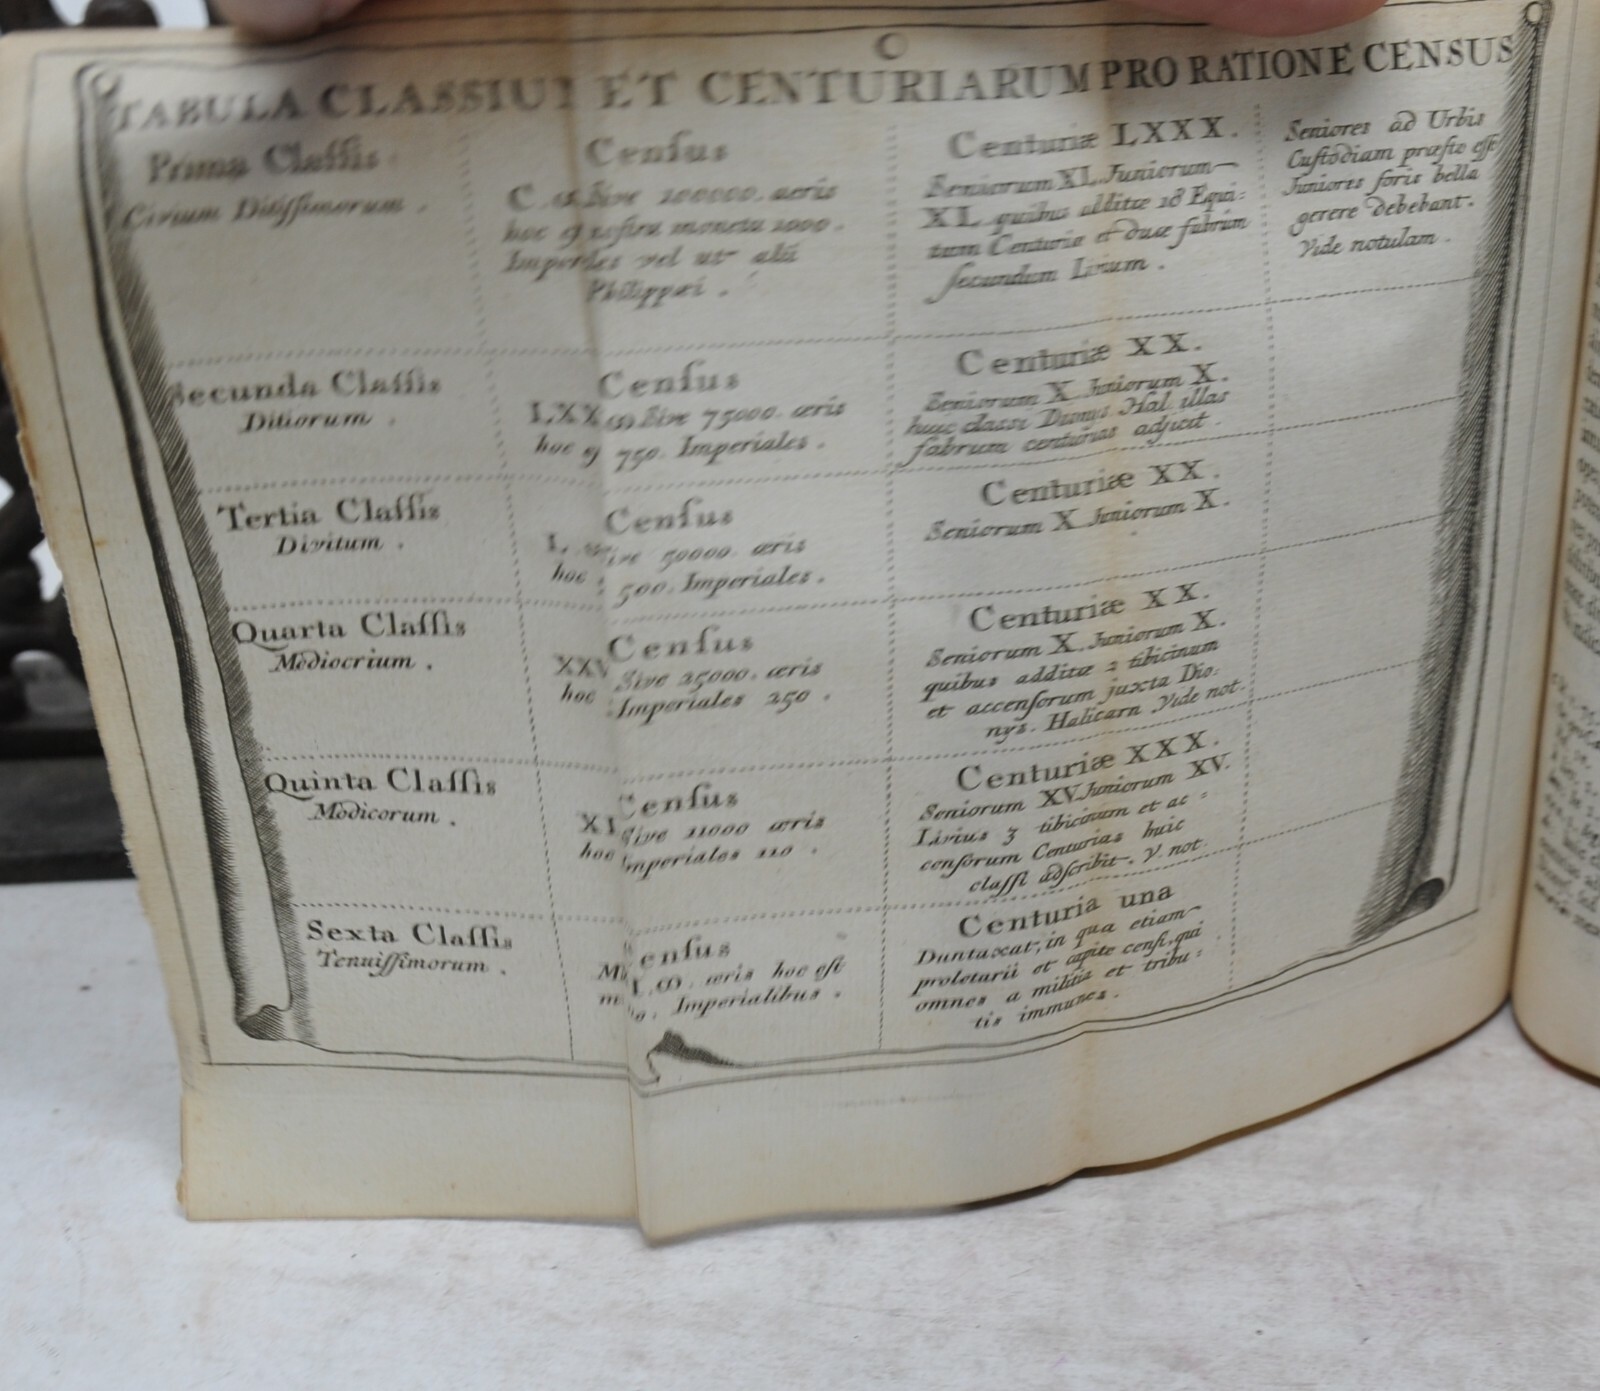 TABULA CLASSIU ET CENTURIARUM PRO RATIONE CENSUS
Prima Claſſis
Civium Ditiſſimorum .
Cenſus
C. Sive 100000. æris
hoc noſtra moneta 1000.
Imperiales vel ut alii
Philippæi .
Centuriæ LXXX.
Seniorum XL Juniorum
XL quibus additæ 18 Equi:
tum Centuriæ et duæ fabrum
ſecundum Livium .
Seniores ad Urbis
Cuſtodiam præſto eſſe
Juniores foris bella
gerere debebant.
Vide notulam .
Secunda Claſſis
Ditiorum .
Cenſus
LXX Sive 75000. æris
hoc 750. Imperiales .
Centuriæ XX.
Seniorum X Juniorum X.
huic claſſi Dionys Hal illas
fabrum centurias adjicit .
Tertia Claſſis
Divitum .
Cenſus
L. ive 50000. æris
hoc 500. Imperiales .
Centuriæ XX.
Seniorum X Juniorum X.
Quarta Claſſis
Mediocrium .
Cenſus
XXV Sive 25000. æris
hoc Imperiales 250 .
Centuriæ XX.
Seniorum X. Juniorum X.
quibus additæ 2 tibicinum
et accenſorum juxta Dio:
nys. Halicarn Vide not.
Quinta Claſſis
Modicorum .
Cenſus
XI Sive 11000 æris
hoc Imperiales 110 .
Centuriæ XXX.
Seniorum XV Juniorum XV.
Livius 3 tibicinum et ac =
cenſorum Centurias huic
claſſi adſcribit. V. not.
Sexta Claſſis
Tenuiſſimorum .
enſus
æris hoc eſt
Imperialibus .
Centuria una
Duntaxat, in qua etiam
proletarii et capite cenſi, qui
omnes a militia et tribu:
tis immunes .